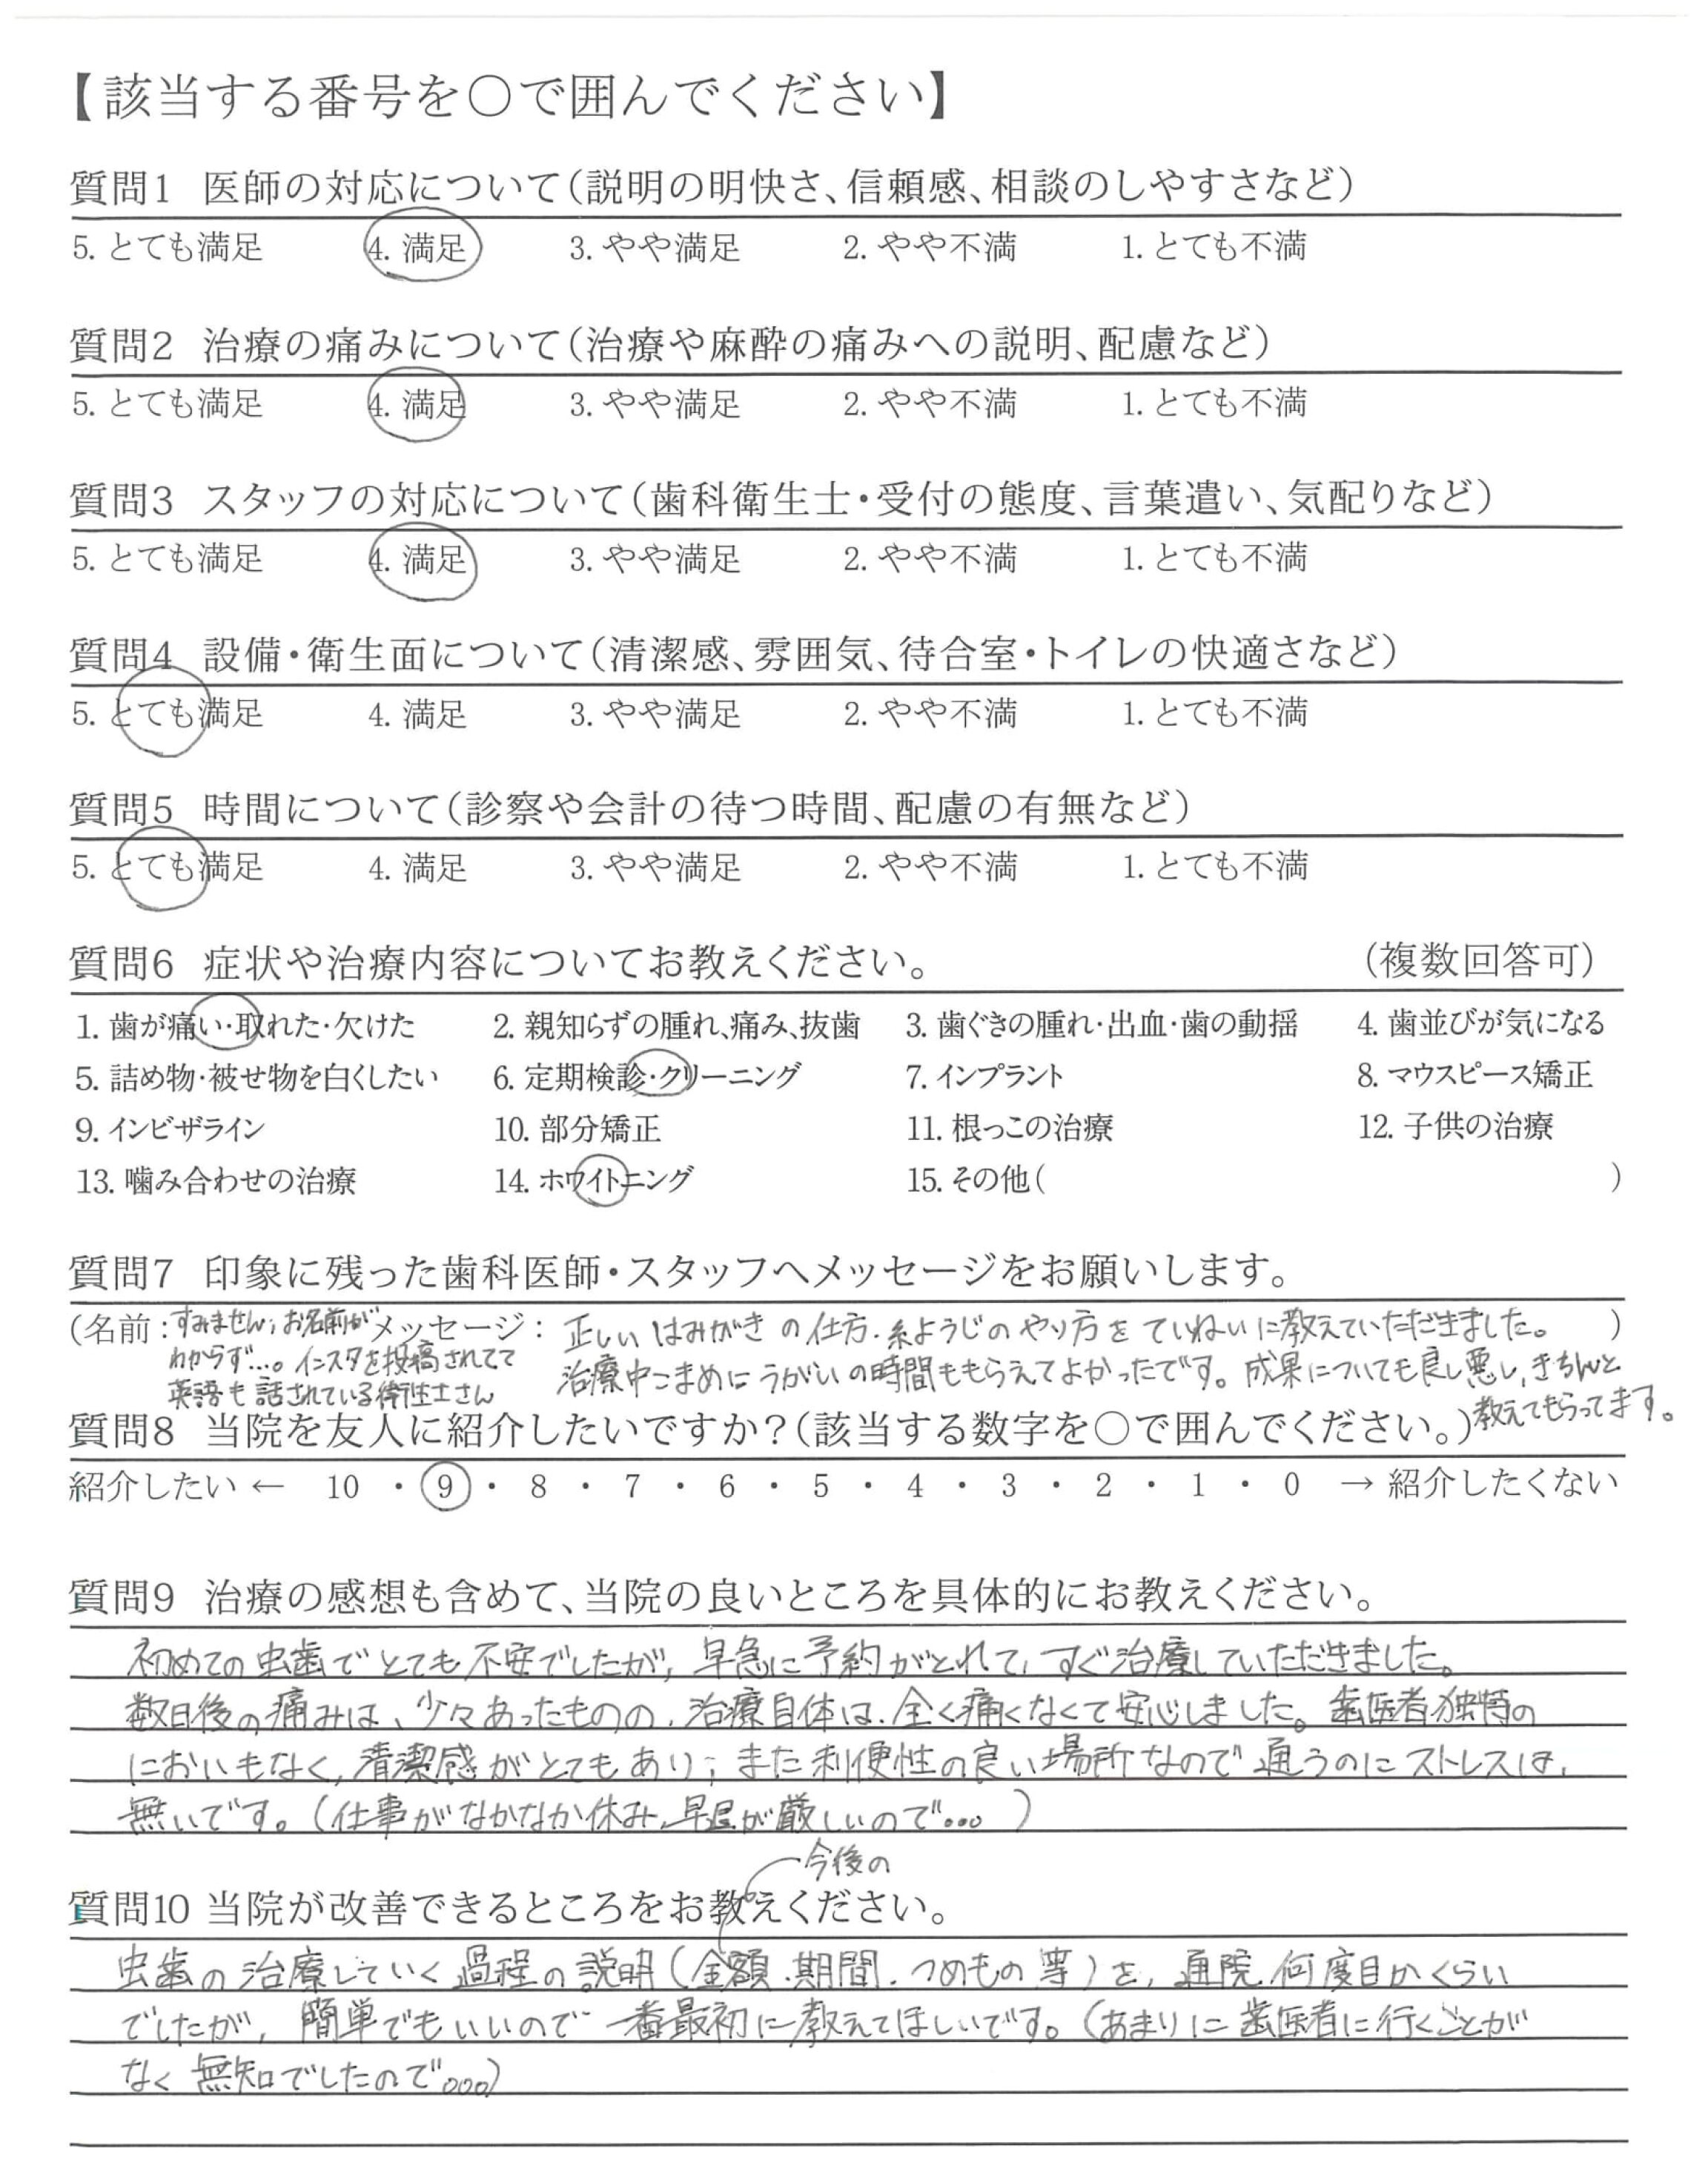 【該当する番号を○で囲んでください】
質問1 医師の対応について(説明の明快さ、信頼感、相談のしやすさなど)
5. とても満足 4. 満足 3. やや満足 2. やや不満 1. とても不満
質問2 治療の痛みについて(治療や麻酔の痛みへの説明、配慮など)
5. とても満足 4. 満足 3. やや満足 2. やや不満 1. とても不満
質問3 スタッフの対応について(歯科衛生士・受付の態度、言葉遣い、気配りなど)
5. とても満足 4. 満足 3. やや満足 2. やや不満 1. とても不満
質問4 設備・衛生面について(清潔感、雰囲気、待合室・トイレの快適さなど)
5. とても満足 4. 満足 3. やや満足 2. やや不満 1. とても不満
質問5 時間について(診察や会計の待つ時間、配慮の有無など)
5. とても満足 4. 満足 3. やや満足 2. やや不満 1. とても不満
質問6 症状や治療内容についてお教えください。 (複数回答可)
1. 歯が痛い・取れた・欠けた 2. 親知らずの腫れ、痛み、抜歯 3. 歯ぐきの腫れ・出血・歯の動揺 4. 歯並びが気になる
5. 詰め物・被せ物を白くしたい 6. 定期検診・クリーニング 7. インプラント 8. マウスピース矯正
9. インビザライン 10. 部分矯正 11. 根っこの治療 12. 子供の治療
13. 噛み合わせの治療 14. ホワイトニング 15. その他( )
質問7 印象に残った歯科医師・スタッフへメッセージをお願いします。
(名前:すみません、お名前が メッセージ: 正しいはみがきの仕方、糸ようじのやり方をていねいに教えていただきました。 )
わからず…。インスタを投稿されてて 治療中こまめにうがいの時間ももらえてよかったです。成果についても良し悪し、きちんと
英語も話されている衛生士さん 教えてもらってます。
質問8 当院を友人に紹介したいですか?(該当する数字を○で囲んでください。)
紹介したい ← 10 ・ 9 ・ 8 ・ 7 ・ 6 ・ 5 ・ 4 ・ 3 ・ 2 ・ 1 ・ 0 → 紹介したくない
質問9 治療の感想も含めて、当院の良いところを具体的にお教えください。
初めての虫歯でとても不安でしたが、早急に予約がとれて、すぐ治療していただきました。
数日後の痛みは、少々あったものの、治療自体は、全く痛くなくて安心しました。歯医者独特の
においもなく、清潔感がとてもあり、また利便性の良い場所なので通うのにストレスは、
無いです。(仕事がなかなか休み、早退が厳しいので…)
今後の
質問10 当院が改善できるところをお教えください。
虫歯の治療していく過程の説明(金額、期間、つめもの等)を、通院何度目かくらい
でしたが、簡単でもいいので一番最初に教えてほしいです。(あまりに歯医者に行くことが
なく無知でしたので…)